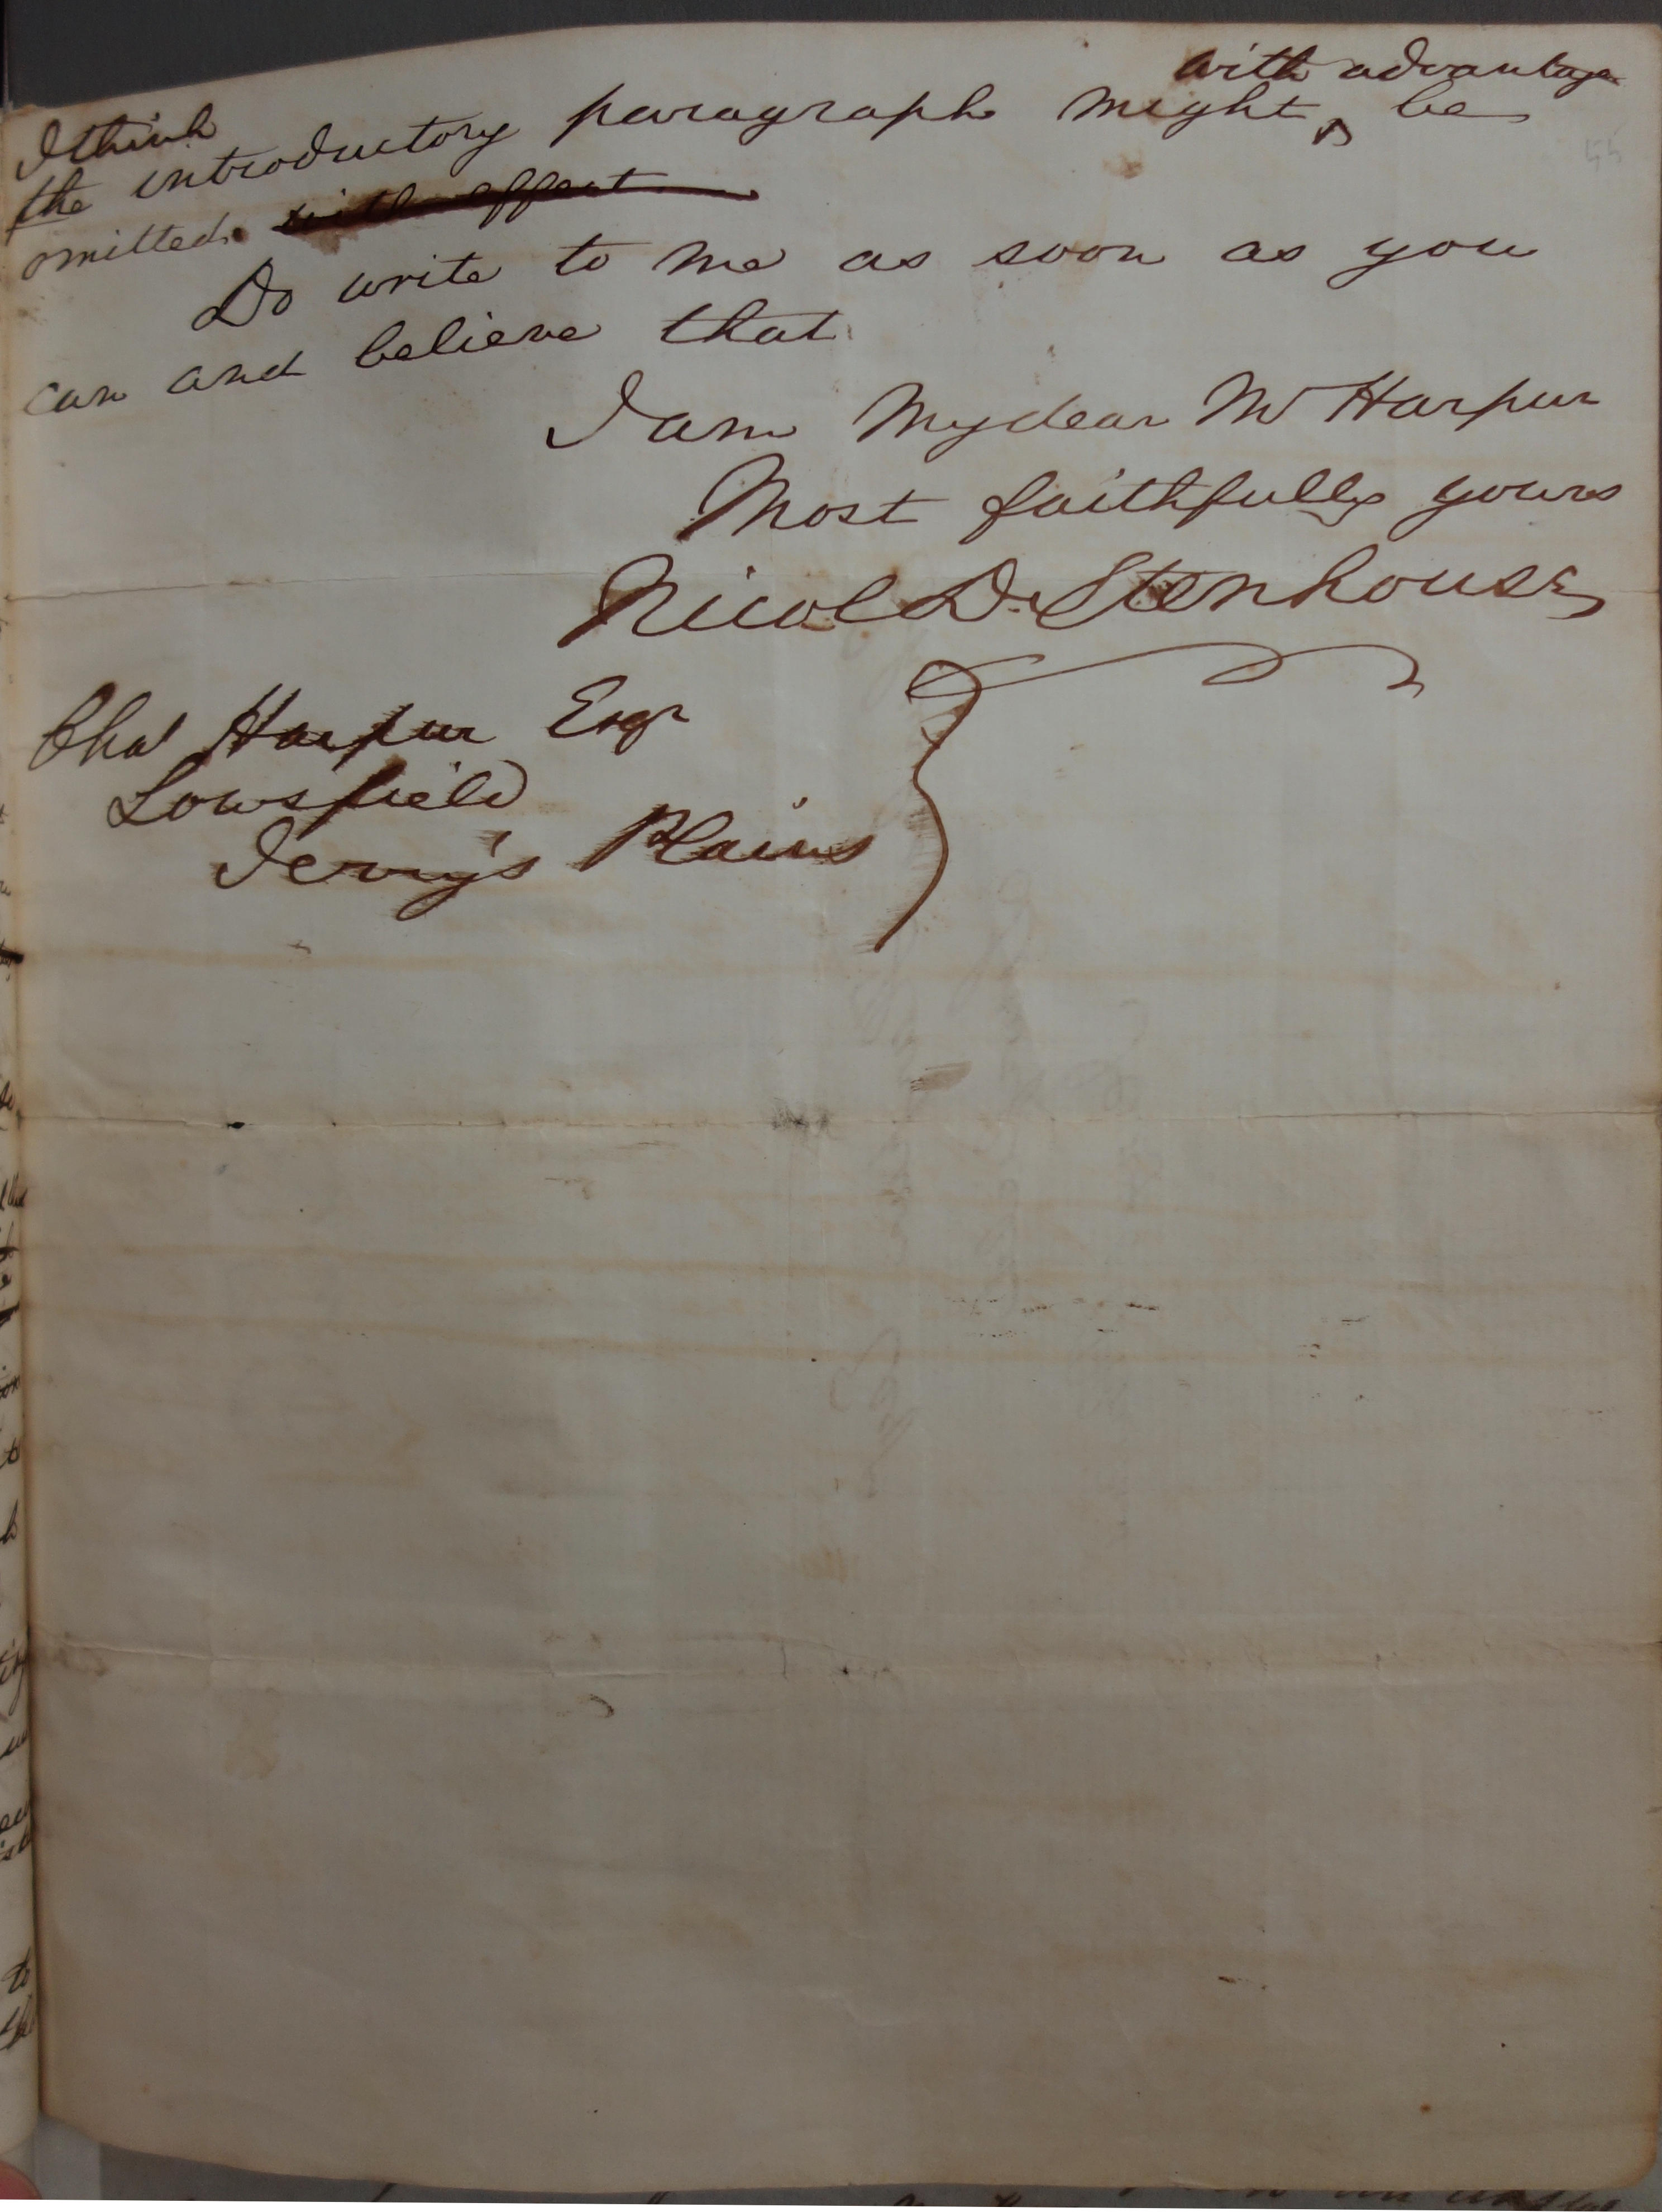 I think
with advantage
the introductory paragraph might ^ be
omitted. with effect
Do write to me as soon as you
can and believe that
I am My dear Mr Harpur
Most faithfully yours
Nicol D. Stenhouse
Chas Harpur Esqr
Lowsfield
Jerry's Plains